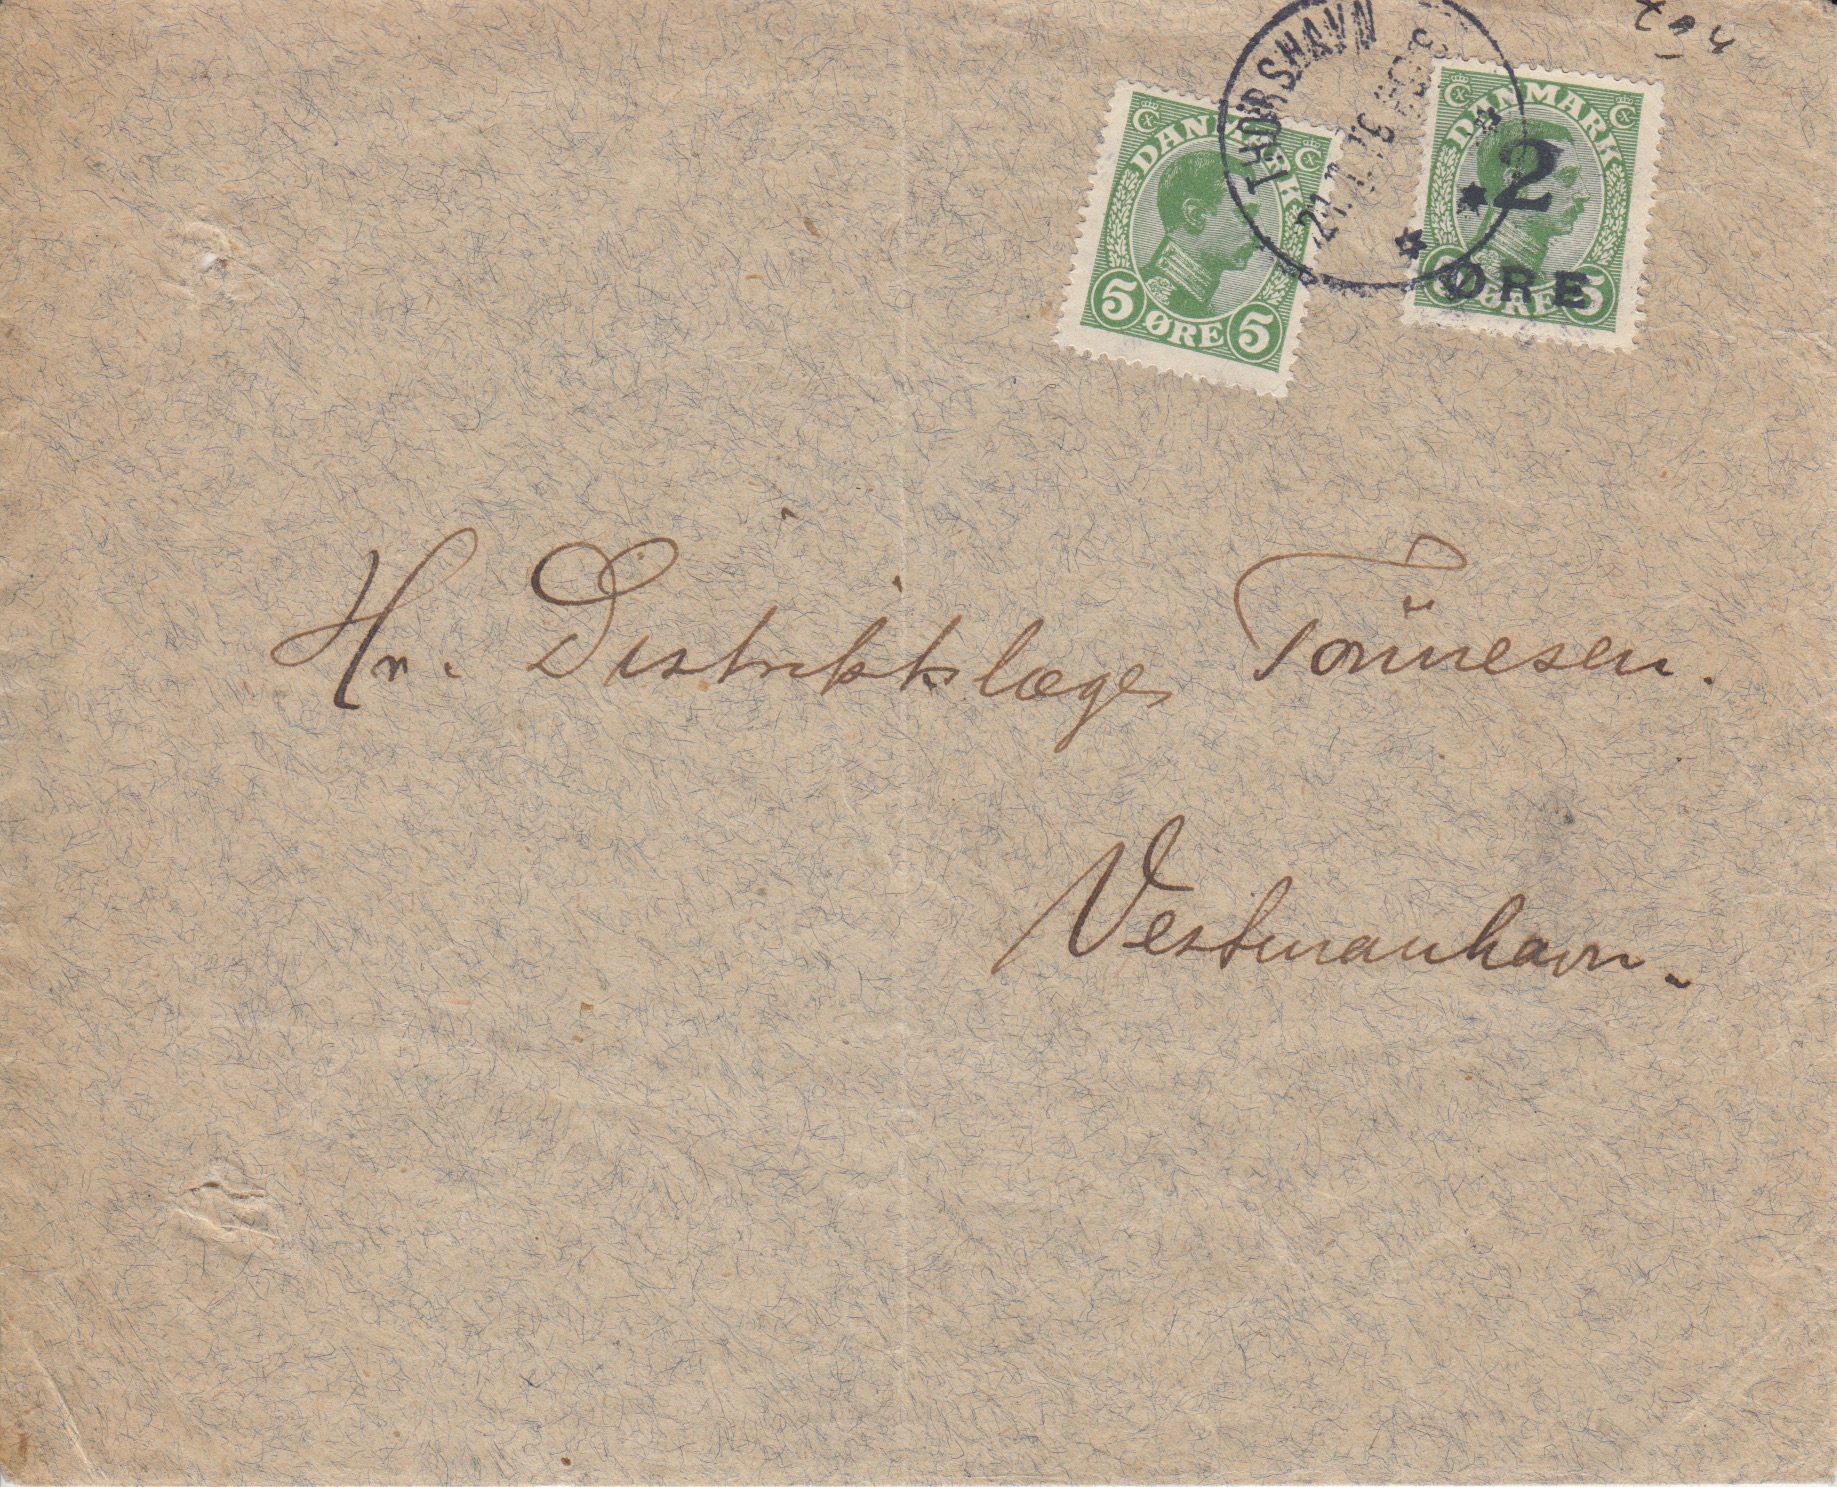 THORSHAVN
DANMARK
5 ØRE 5
DANMARK
2
ØRE
ØRE 5
Hr. Distriktslæge Tönnesen.
Vestmanhavn.